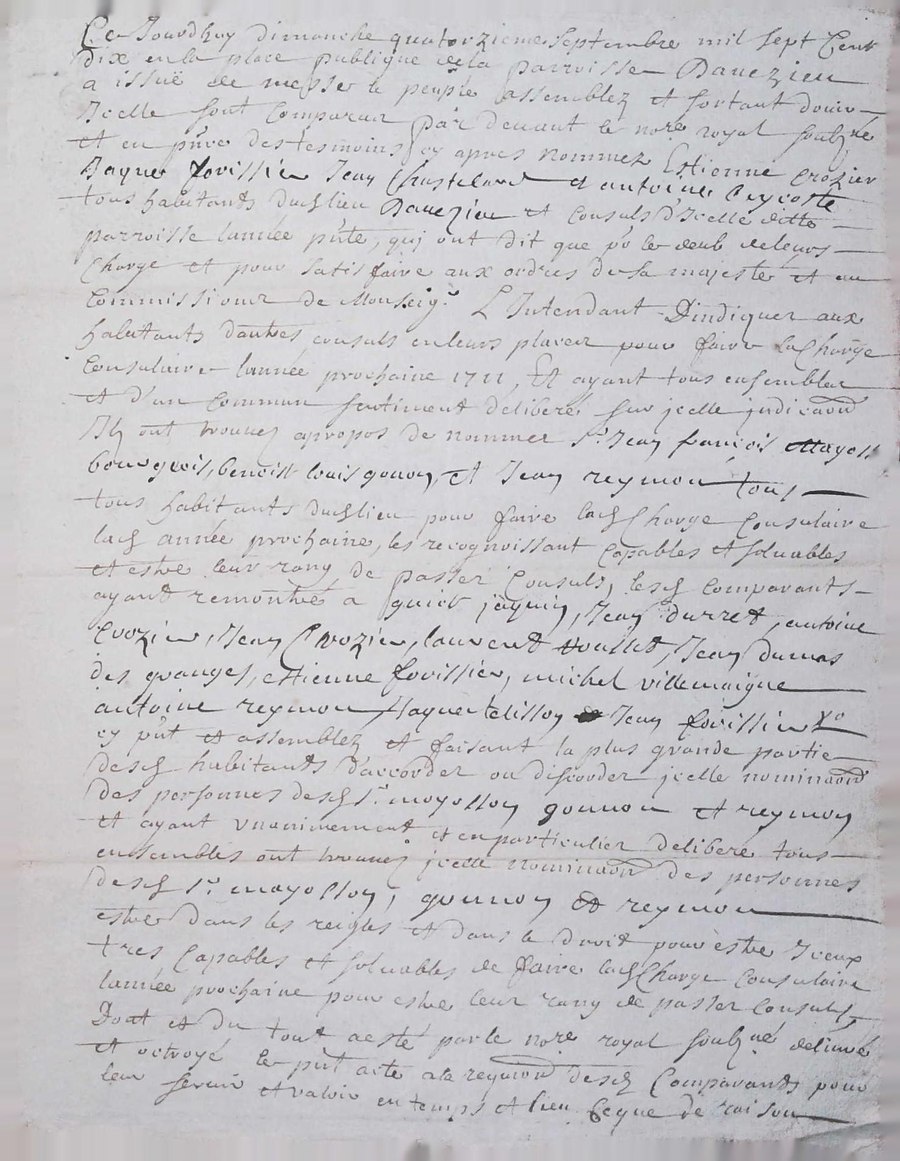 Ce Jourdhuy dimanche quatorzieme septembre mil sept Cent
dix en la place publique de la parroisse Davezieu
a issuë de messe le peuple assemblez et sortant douir
Jcelle sont comparus par devant le nore royal soubzné
et en pnce des tesmoins cy apres nommez Estienne Crozier
Jaques fovillier Jean Chastelard et antoine Peycoste
tous habitants dud lieu Davezieu et consuls d'Jcelle ditte
parroisse lannée pnte, qui ont dit que po le deub de leurs
Charge et pour satisfaire aux ordres de sa majesté et au
Commissions de Monseigr L'Intendant Dindiquer aux
habitants dautres consuls en leurs places pour faire la Charge
Consulaire lannée prochaine 1711, Et ayant tous ensembles
et d'un commun sentiment deliberé sur jcelle judicaon
Ils ont trouvez apropos de nommer sr Jean francois Mayoll
bourgeois, benoist louis gonon, et Jean reymon tous
tous habitants dud lieu pour faire lad Charge Consulaire
lad année prochaine, les recognoissant capables et solvables
et estre leur rang de passer Consuls, lesd comparants
ayant remontré a jaquin, Jean durret, antoine
Crozier, Jean Crozier, laurent Jean dumas
des granges, estienne fovillier, michel villemaigne
antoine reymon Jaques telisson Jean fovillier
cy pnt et assemblez et faisant la plus grande partie
desd habitants d'accorder ou discorder jcelle nominaon
des personnes desd sr mayollon gonnon et reymon
et ayant unanimement et en particulier deliberé tous
ensembles ont trouvez jcelle nominaon des personnes
desd sr mayollon, gonnon et reymon
estre dans les reigles et dans le droit pour estre Jceux
tres capables et solvables de faire lad Charge consulaire
lannée prochaine pour estre leur rang de passer Consuls,
Dont et du tout a esté par le nore royal soubzné
et octroyé le pnt acte a la desd Comparants pour
leur servir et valoir en temps et lieu Ce que de raison